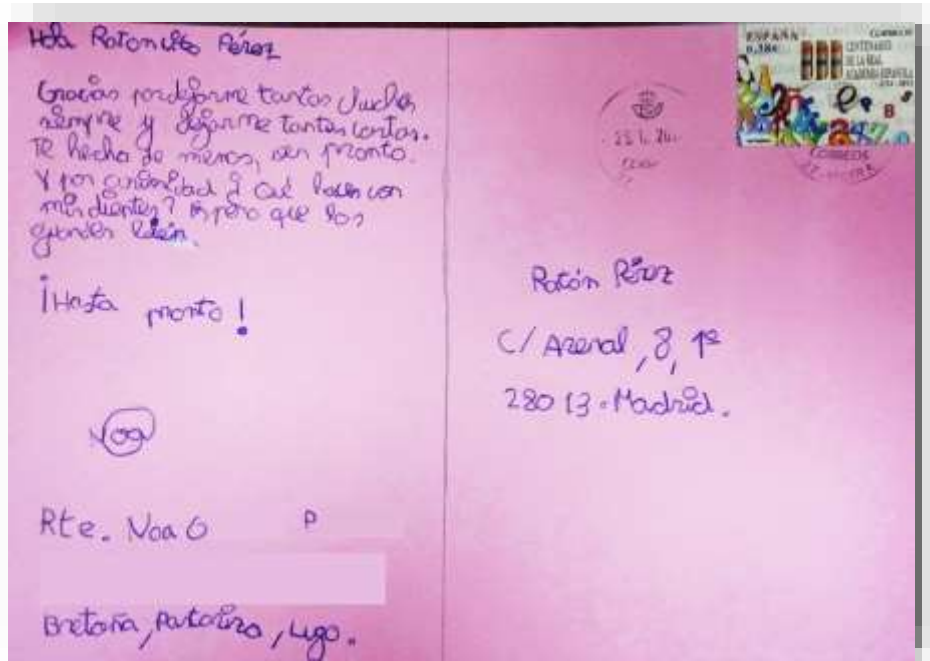 Hola Ratoncito Pérez
Gracias por dejarme tantas chuches
siempre y dejarme tantas cartas.
Te hecho de menos, ven pronto.
Y por curiosidad ¿ Qué haces con
mis dientes? Espero que los
guardes bien.
¡Hasta pronto!
Noa
Rte. Noa O P
Bretoña, Pastoriza, Lugo.
ESPAÑA CORREOS
0,38€ CENTENARIO
DE LA REAL
ACADEMIA ESPAÑOLA
CORREOS
Ratón Pérez
C/ Arenal, 8, 1º
28013 · Madrid.